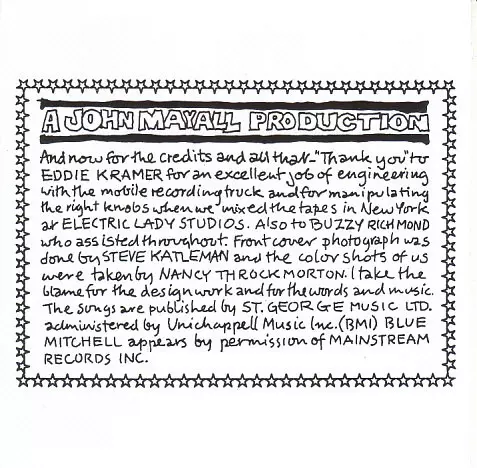 A JOHN MAYALL PRODUCTION
And now for the credits and all that - "Thank you" to
EDDIE KRAMER for an excellent job of engineering
with the mobile recording truck and for manipulating
the right knobs when we mixed the tapes in New York
at ELECTRIC LADY STUDIOS. Also to BUZZY RICHMOND
who assisted throughout. Front cover photograph was
done by STEVE KATLEMAN and the color shots of us
were taken by NANCY THROCKMORTON. I take the
blame for the design work and for the words and music.
The songs are published by ST. GEORGE MUSIC LTD.
administered by Unichappell Music Inc. (BMI) BLUE
MITCHELL appears by permission of MAINSTREAM
RECORDS INC.